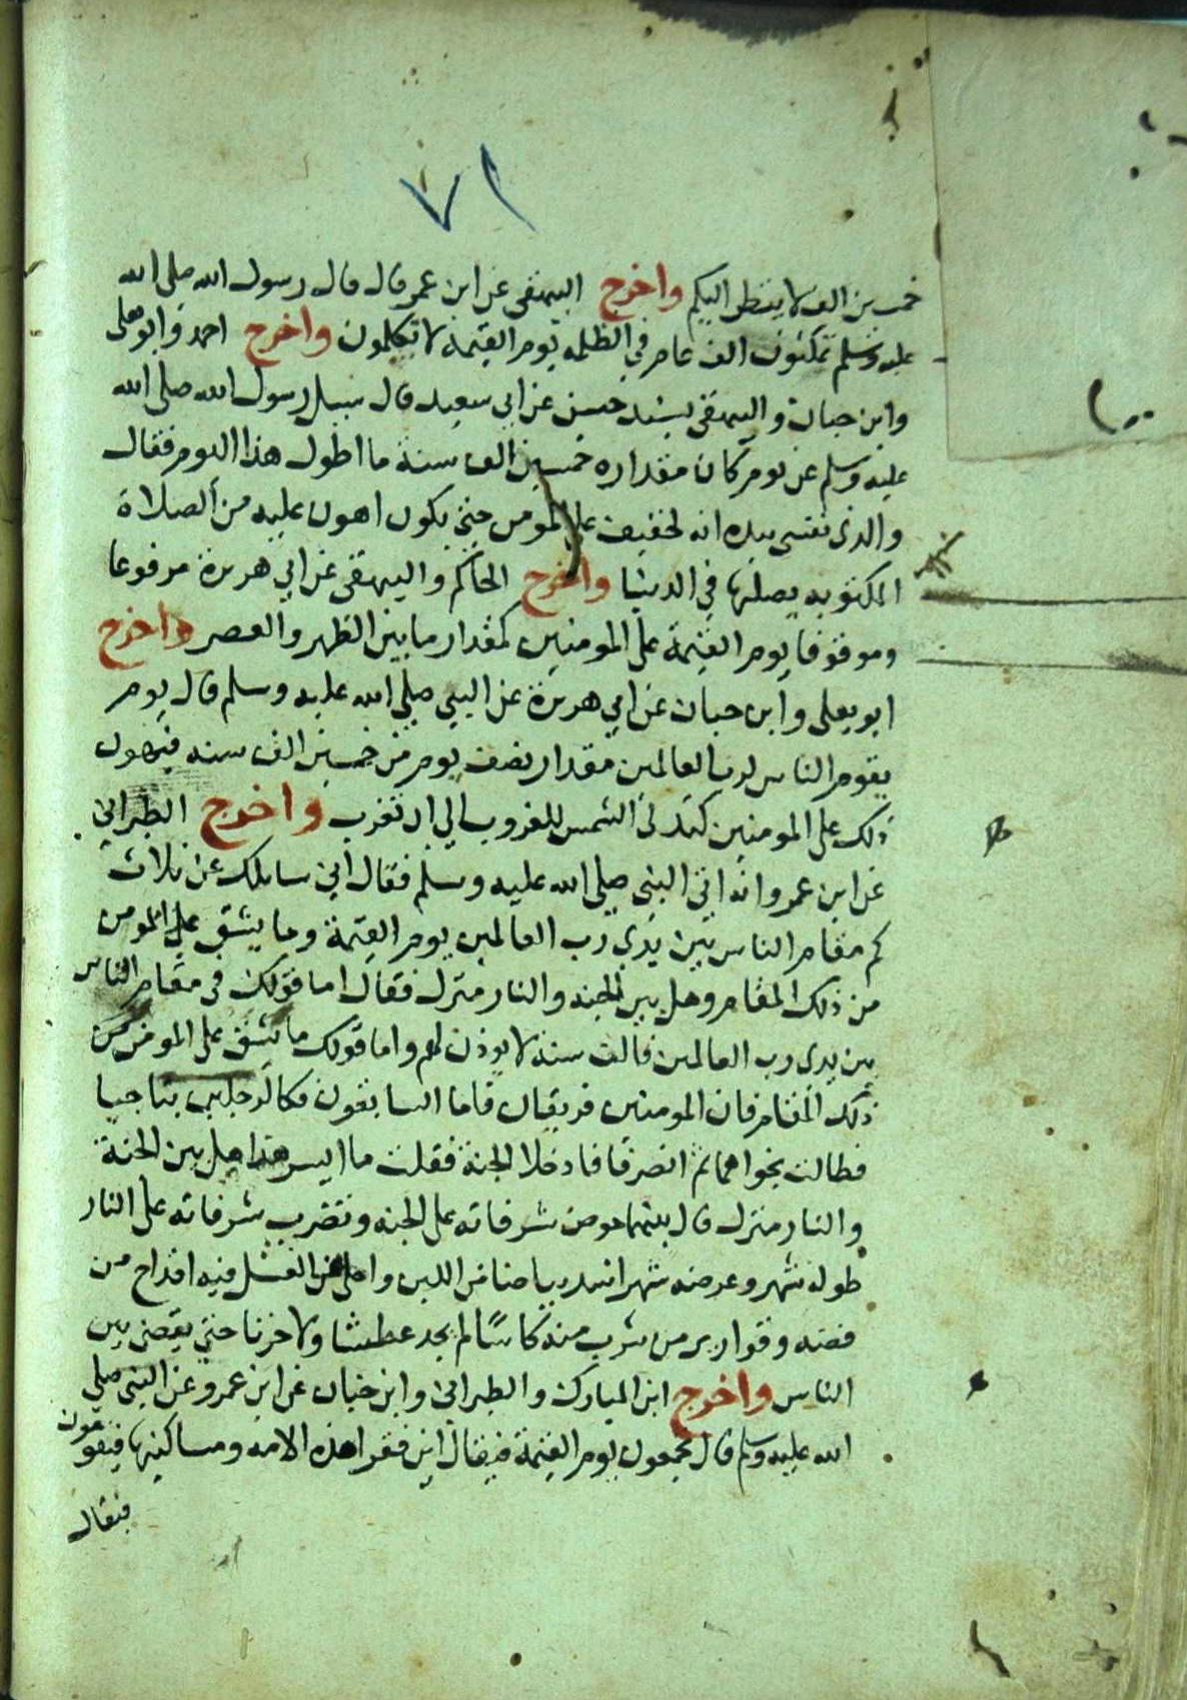 ٧١
خمسين الف لا ينظر اليكم واخرج البيهقي عن ابن عمر قال قال رسول الله صلى الله
عليه وسلم تمكثون الف عام في الظلمه يوم القيمة لا تكلمون واخرج احمد وابو يعلى
وابن حبان والبيهقي بسند حسن عن ابي سعيد قال سيل رسول الله صلى الله
عليه وسلم عن يوم كان مقداره خمسين الف سنة ما اطول هذا اليوم فقال
والذي نفسي بيده انه لخفيف على المومن حتى يكون اهون عليه من الصلاة
المكتوبه يصليها في الدنيا واخرج الحاكم والبيهقي عن ابي هريرة مرفوعا
وموقوفا يوم القيمة على المومنين كمقدار ما بين الظهر والعصر واخرج
ابو يعلى وابن حبان عن ابي هريرة عن النبي صلى الله عليه وسلم قال يوم
يقوم الناس لرب العالمين مقدار نصف يوم من خمسين الف سنه فيهون
ذلك على المومنين كتدلى الشمس للغروب الى ان تغرب واخرج الطبراني
عن ابن عمر وانه اتى النبي صلى الله عليه وسلم فقال اني سايلك عن ثلاث
كم مقام الناس بين يدي رب العالمين يوم القيمة وما يشق على المومن
من ذلك المقام وهل بين الجنه والنار منزل فقال اما قولك في مقام الناس
بين يدي رب العالمين فالف سنه لا يوذن لهم واما قولك ما يشق على المومن من
ذلك المقام فان المومنين فريقان فاما السابقون فكالرجلين تناجيا
فطالت نجواهما ثم انصرفا فادخلا الجنة فقلت ما ايسر هذا هل بين الجنة
والنار منزل قال بينهما حوض شرفاته على الجنه وتضرب شرفاته على النار
طوله شهر وعرضه شهر اشد بياضا من اللبن واحلى من العسل فيه اقداح من
فضه وقوارير من شرب منه كاسًا لم يجد عطشا ولا حزنا حتى يقضى بين
الناس واخرج ابن المبارك والطبراني وابن حبان عن ابن عمرو عن النبي صلى
الله عليه وسلم قال تجمعون يوم القيمة فيقال اين فقرا هذه الامه ومساكينها فيقومون
فيقال